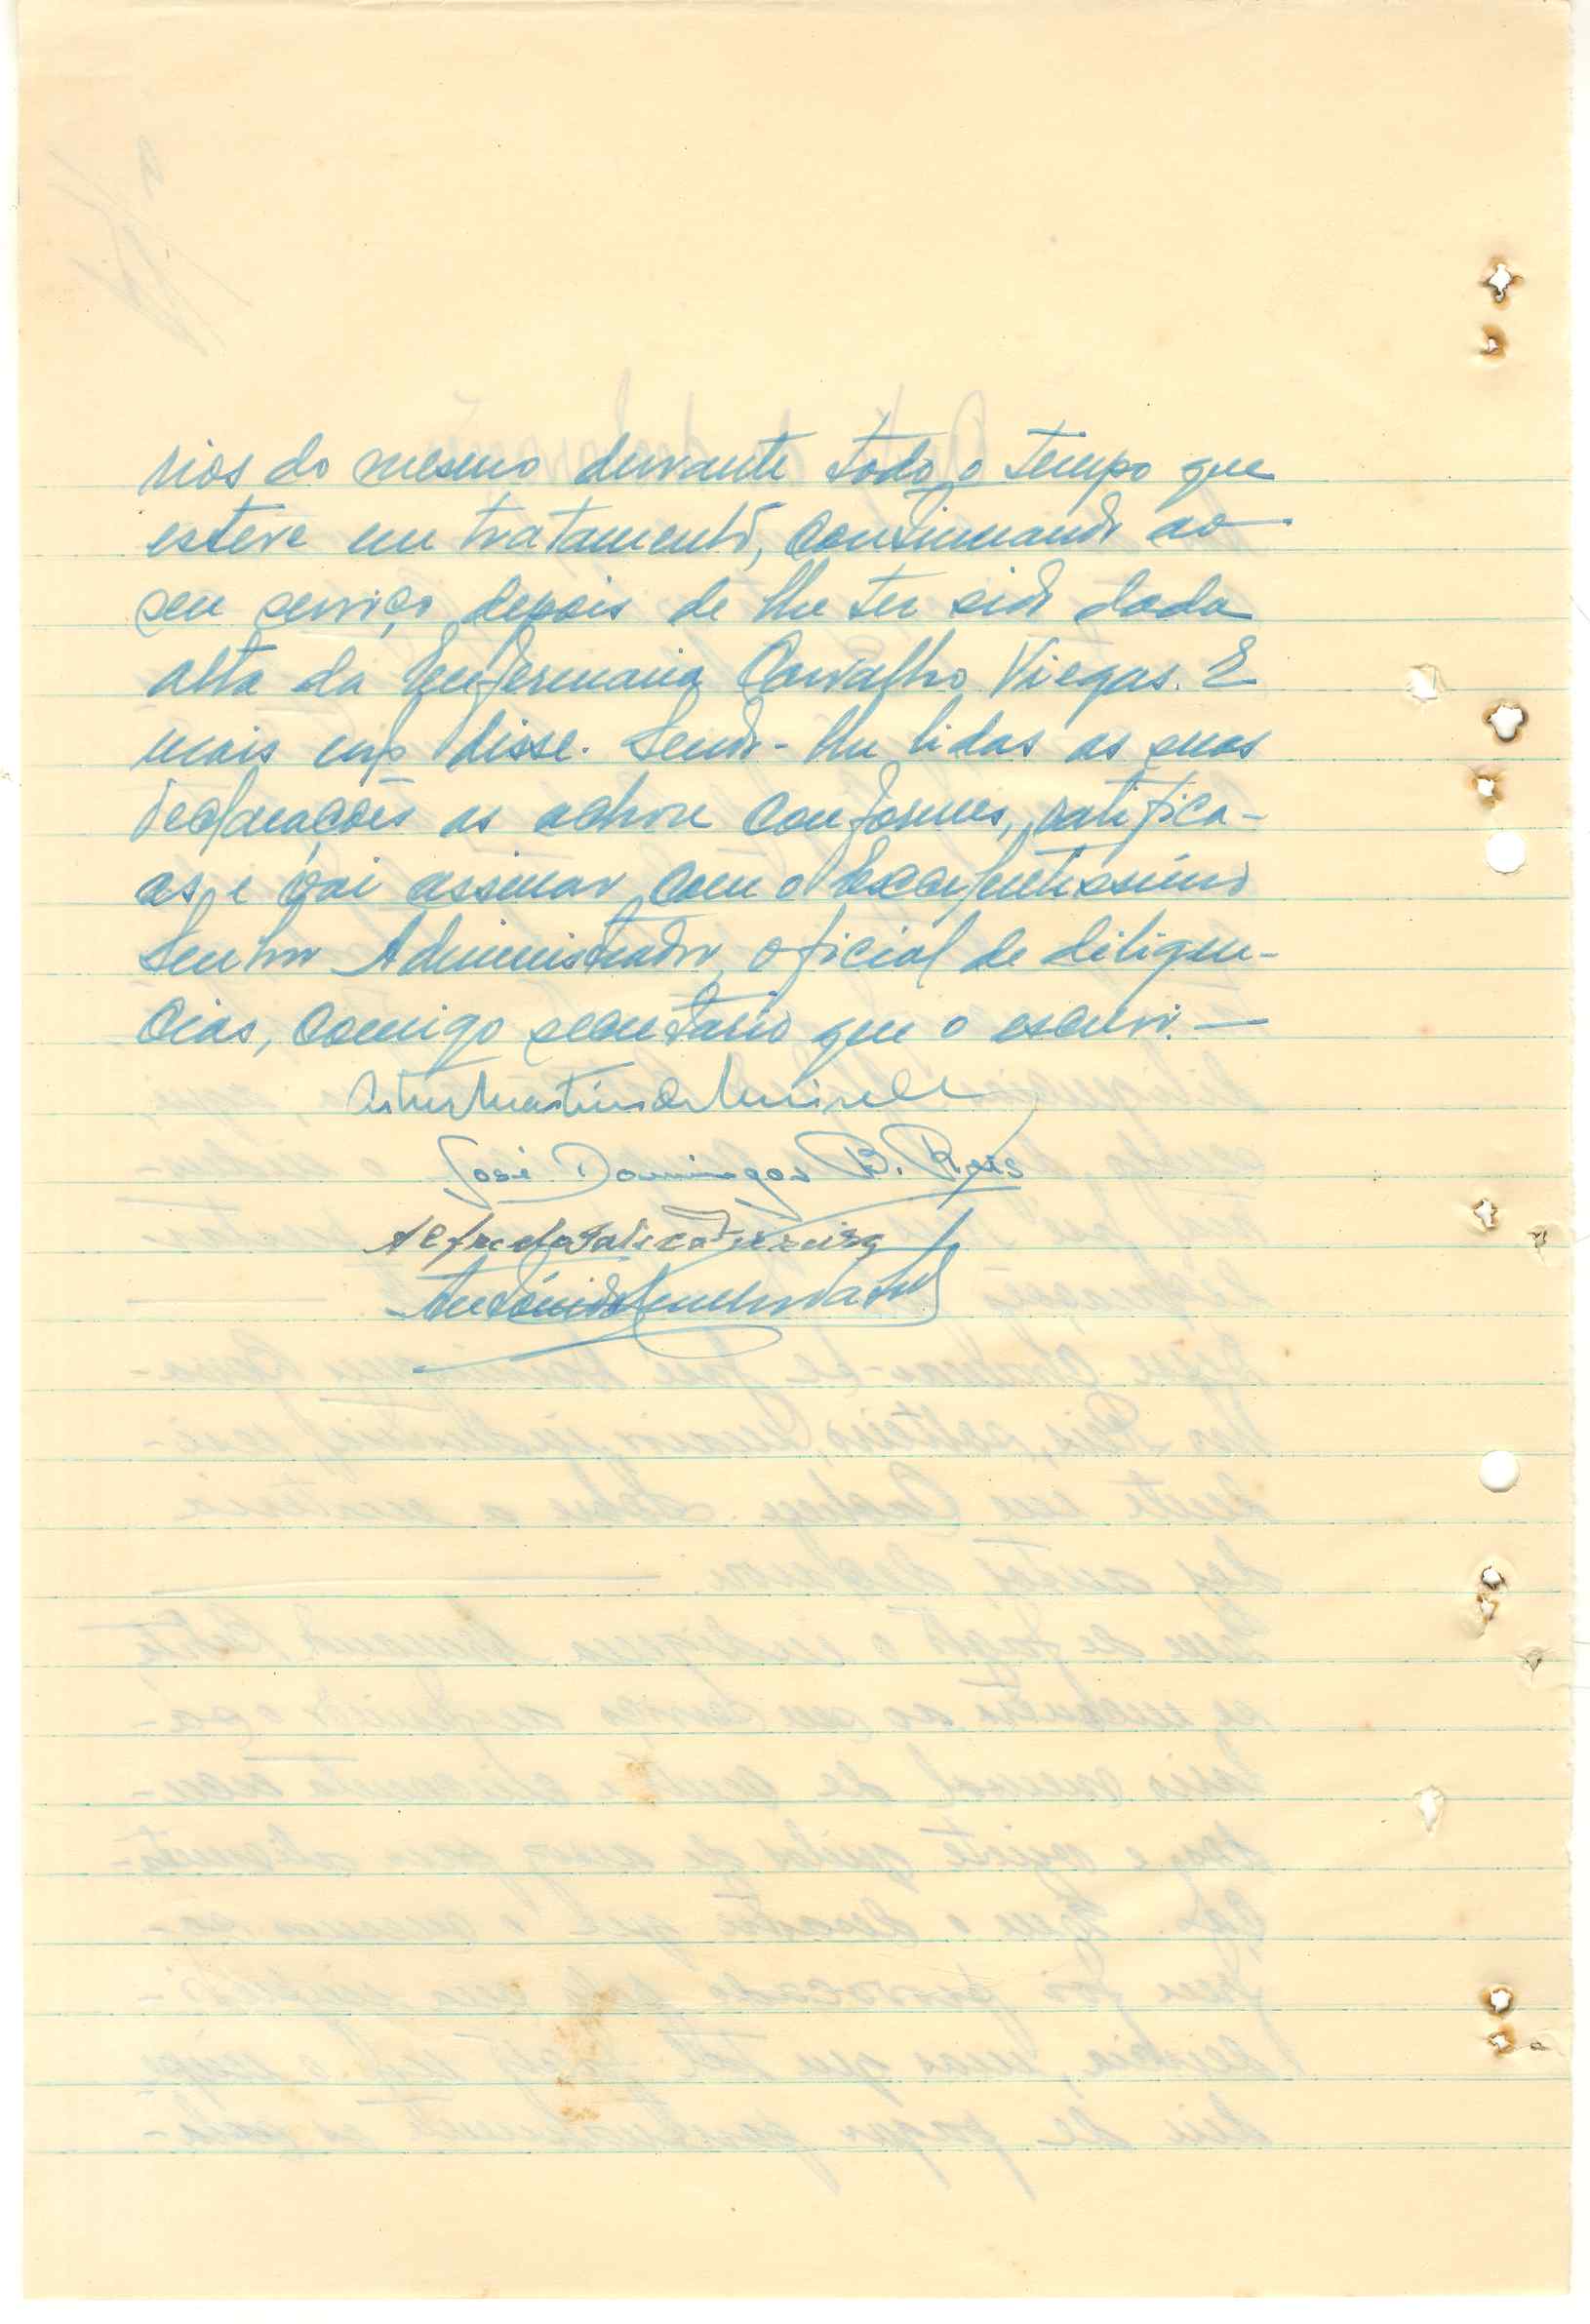 rios do mesmo durante todo o tempo que
esteve em tratamento, continuando ao
seu serviço depois de lhe ter sido dada
alta da Enfermaria Carvalho Viegas. E
mais não disse. Sendo-lhe lidas as suas
declarações as achou conformes, ratifica-
as, e vai assinar com o Excelentíssimo
Senhor Administrador, oficial de diligen-
cias, comigo secretario que o escrevi.—
Martins de
José Domingos B. Reis
Alfredo
António